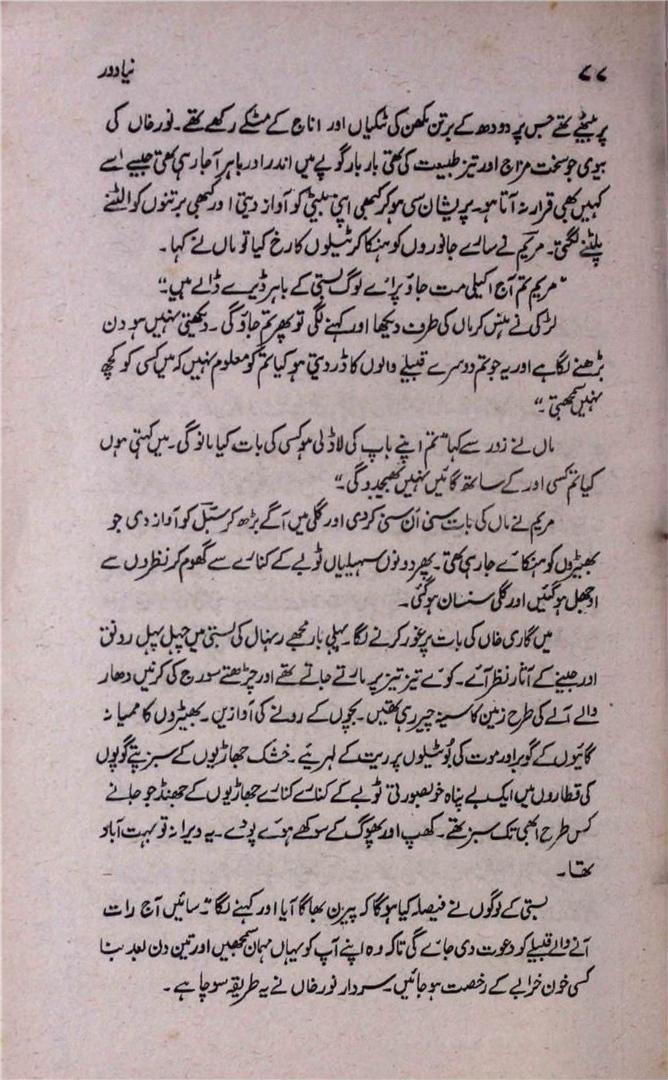 ۷۷ نیا دور
پر بیٹھے تھے جس پر دودھ کے برتن مکھن کی ٹکیاں اور اناج کے مٹکے رکھے تھے۔ نور خاں کی
بیوی جو سخت مزاج اور تیز طبیعت کی تھی بار بار گوپے میں اندر اور باہر آ جا رہی تھی جیسے اسے
کہیں بھی قرار نہ آتا ہو۔ پریشان سی ہو کر کبھی اپنی بیٹی کو آواز دیتی اور کبھی برتنوں کو الٹنے
پلٹنے لگتی۔ مریم نے سارے جانوروں کو ہنکا کر ٹیلوں کا رخ کیا تو ماں نے کہا۔
"مریم تم آج اکیلی مت جاؤ پرائے لوگ بستی کے باہر ڈیرے ڈالے ہیں۔"
لڑکی نے ہنس کر ماں کی طرف دیکھا اور کہنے لگی تو پھر تم جاؤ گی۔ دیکھتی نہیں ہو دن
بڑھنے لگا ہے اور یہ جو تم دوسرے قبیلے والوں کا ڈر دیتی ہو کیا تم کو معلوم نہیں کہ میں کسی کو کچھ
نہیں سمجھتی۔"
ماں نے زور سے کہا "تم اپنے باپ کی لاڈلی ہو کسی کی بات کیا مانو گی۔ میں کہتی ہوں
کیا تم کسی اور کے ساتھ گائیں نہیں بھیجدو گی۔"
مریم نے ماں کی بات سنی ان سنی کر دی اور گلی میں آگے بڑھ کر سنبل کو آواز دی جو
بھیڑوں کو ہنکائے جا رہی تھی۔ پھر دونوں سہیلیاں ٹوبے کے کنارے سے گھوم کر نظروں سے
اوجھل ہو گئیں اور گلی سنسان ہو گئی۔
میں گاری خاں کی بات پر غور کرنے لگا۔ پہلی بار مجھے رنہال کی بستی میں چہل پہل رونق
اور جینے کے آثار نظر آئے۔ کوے تیز تیز پر مارتے جاتے تھے اور چڑھتے سورج کی کرنیں دھار
والے آلے کی طرح زمین کا سینہ چیر رہی تھیں۔ بچوں کے رونے کی آوازیں۔ بھیڑوں کا ممیانا
گائیوں کے گوبر اور موت کی بُو ٹیلوں پر ریت کے لہریئے۔ خشک جھاڑیوں کے سبز پتے گوپوں
کی قطاروں میں ایک بے پناہ خوبصورتی ٹوبے کے کنارے کنارے جھاڑیوں کے جھنڈ جو جانے
کس طرح ابھی تک سبز تھے۔ کھپ اور پھوگ کے سوکھے ہوئے پودے۔ یہ ویرانہ تو بہت آباد
تھا۔
بستی کے لوگوں نے فیصلہ کیا ہو گا کہ پیرن بھاگا آیا اور کہنے لگا "سائیں آج رات
آنے والے قبیلے کو دعوت دی جائے گی تاکہ وہ اپنے آپ کو یہاں مہمان سمجھیں اور تین دن بعد بنا
کسی خون خرابے کے رخصت ہو جائیں۔ سردار نور خاں نے یہ طریقہ سوچا ہے۔